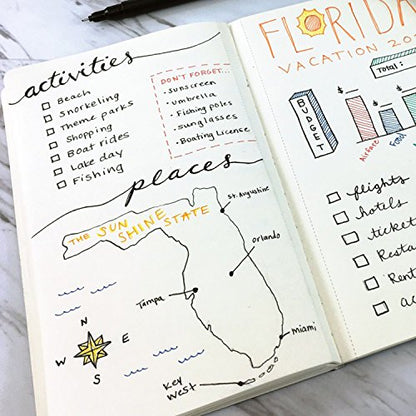 activities
Beach
Snorkeling
Theme parks
Shopping
Boat rides
Lake day
Fishing
DON'T FORGET...
• Sunscreen
• umbrella
• Fishing poles
• Sunglasses
• Boating License
places
THE SUN
SHINE STATE
St. Augustine
Orlando
Tampa
Miami
Key West
N
W E
S
FLORIDA
VACATION
Total:
BUDGET
Airfare
Food
flights
hotels